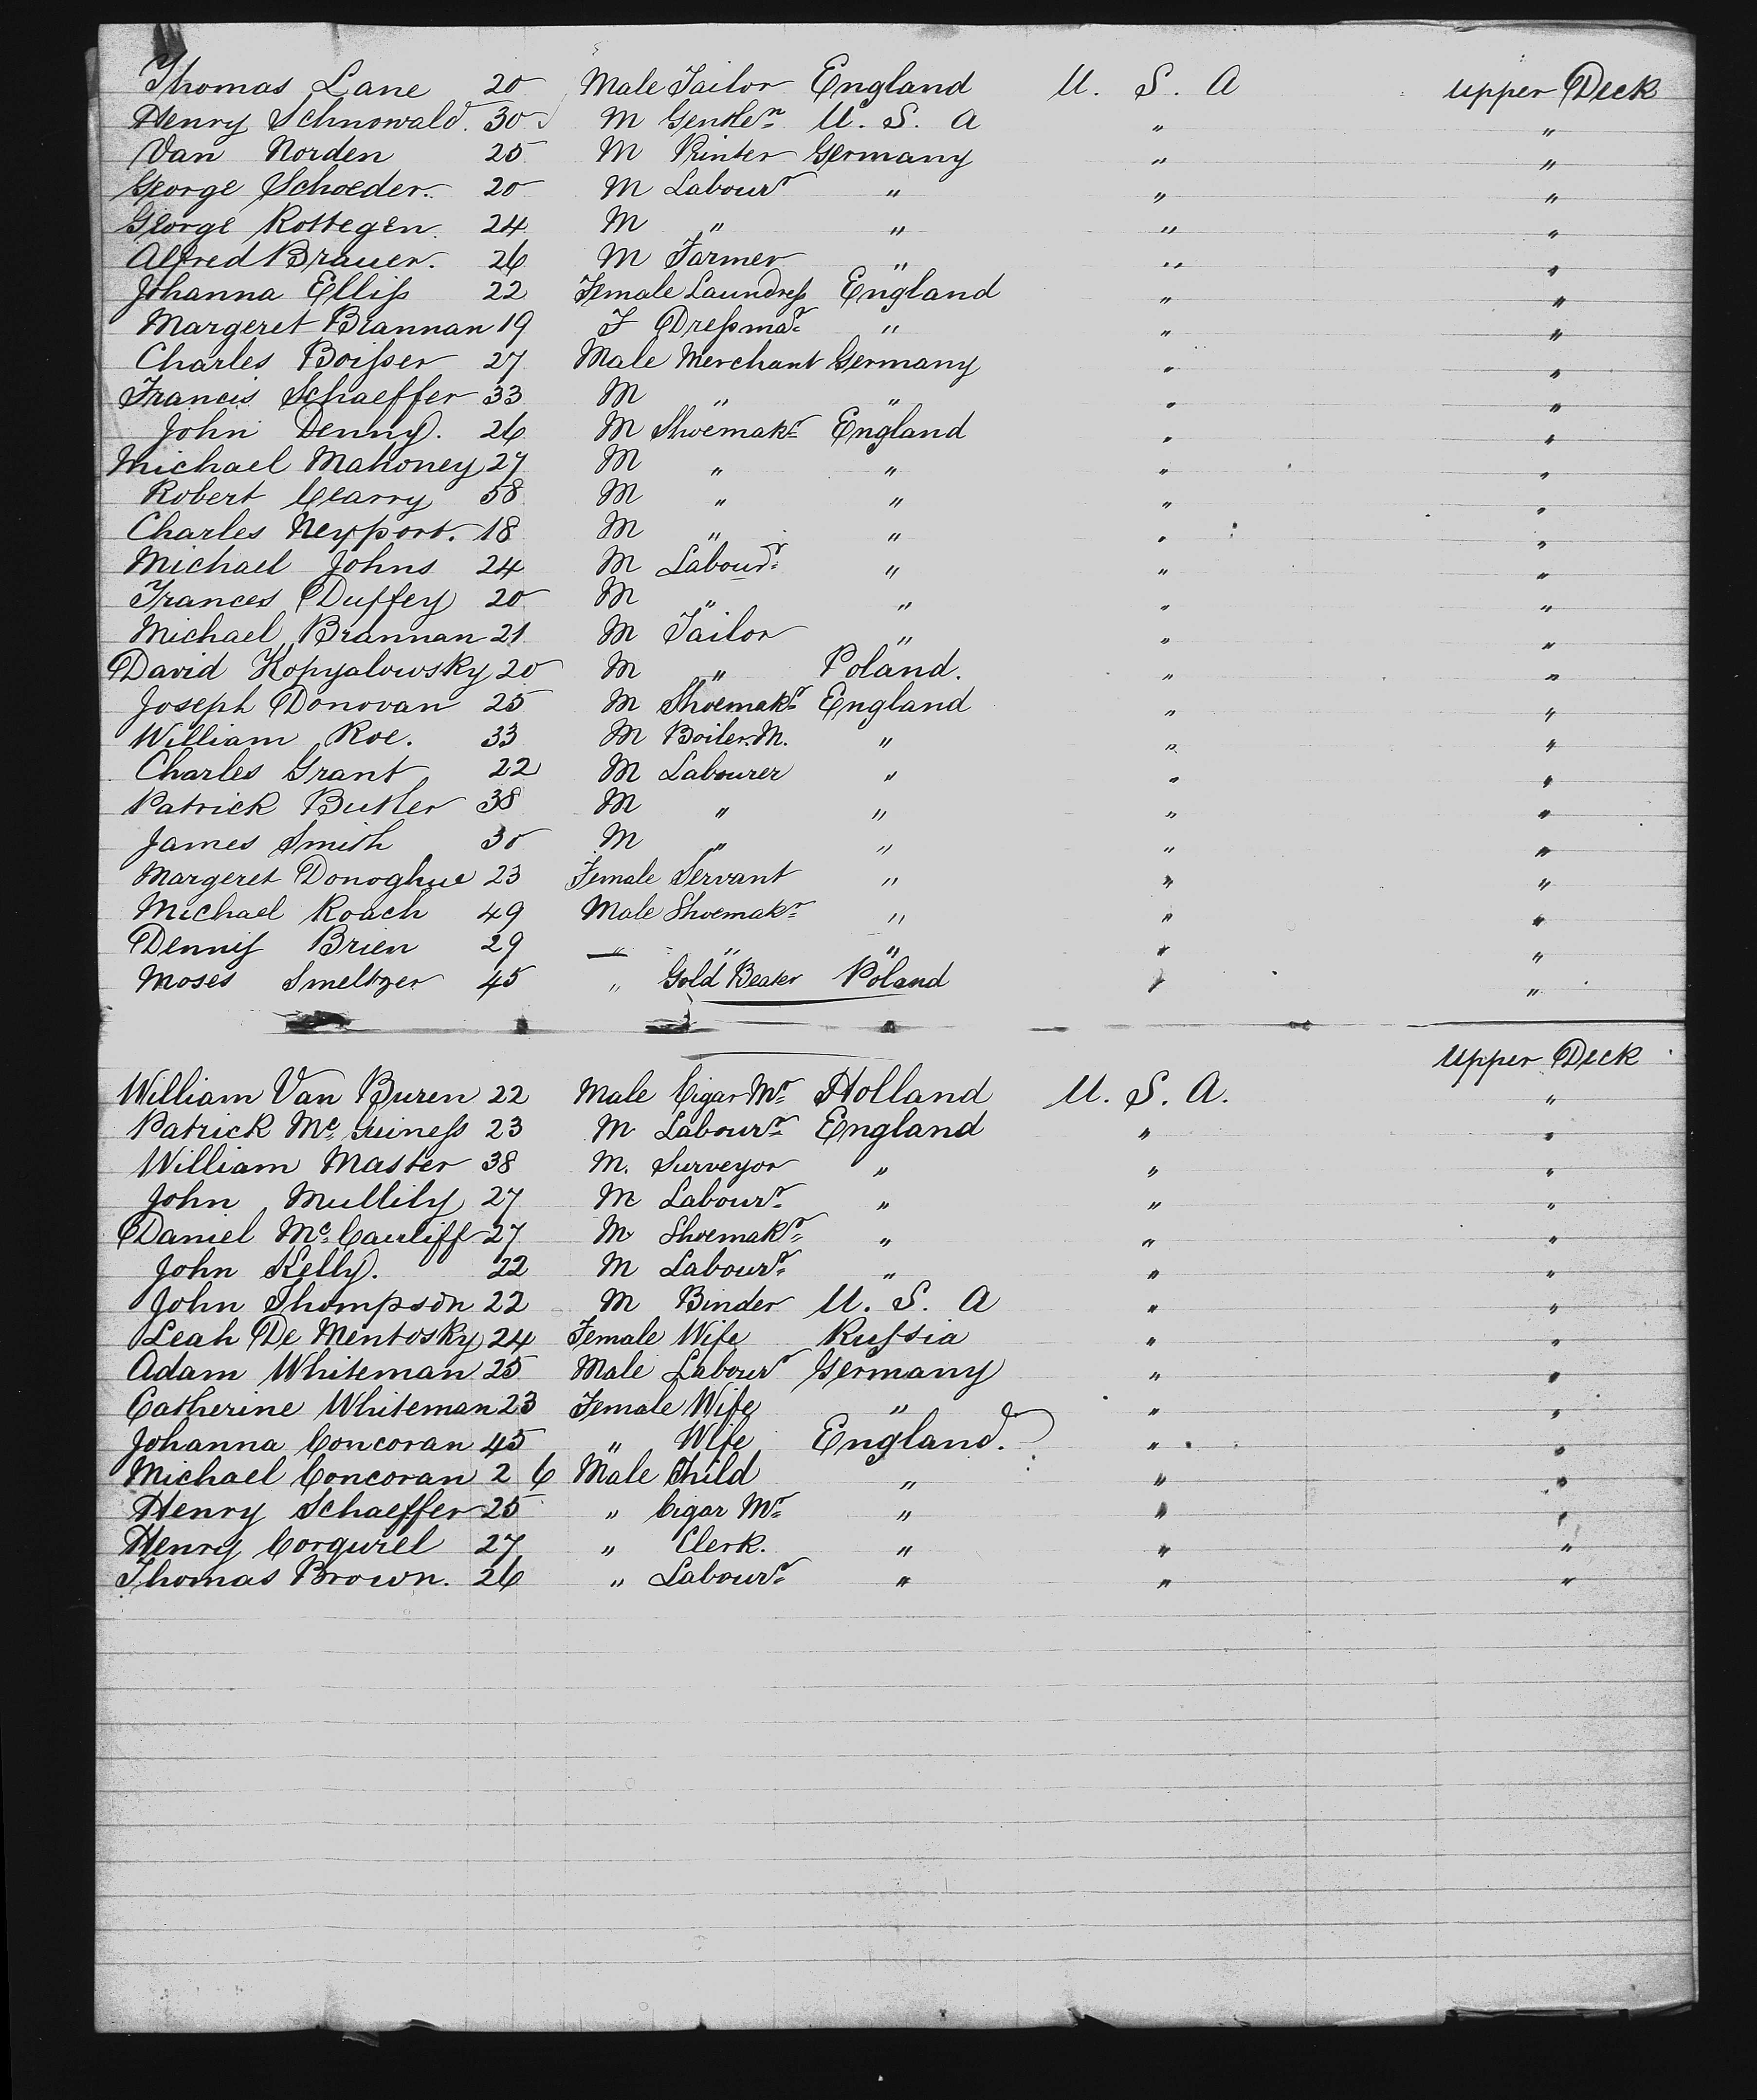 Thomas Lane 20 Male Tailor England U. S. A Upper Deck
Henry Schnowald. 30 M Gentlen U. S. A " "
Van Norden 25 M Printer Germany " "
George Schoeder. 20 M Labourr " " "
George Rottegen 24 M " " " "
Alfred Brauer. 26 M Farmer " " "
Johanna Elliſs 22 Female Laundreſs England " "
Margeret Brannan 19 F Dreſsmar " " "
Charles Boiſser 27 Male Merchant Germany " "
Francis Schaeffer 33 M " " " "
John Denny. 26 M Shoemakr England " "
Michael Mahoney 27 M " " " "
Robert Clarry 58 M " " " "
Charles Neyport. 18 M " " " "
Michael Johns 24 M Labourr " " "
Frances Duffey 20 M " " " "
Michael Brannan 21 M Tailor " " "
David Kopyalowsky 20 M " Poland. " "
Joseph Donovan 25 M Shoemakr England " "
William Roe. 33 M Boiler.M. " " "
Charles Grant 22 M Labourer " " "
Patrick Butler 38 M " " " "
James Smith 30 M " " " "
Margeret Donoghue 23 Female Servant " " "
Michael Roach 49 Male Shoemakr " " "
Dennis Brien 29 " " " " "
Moses Smeltzer 45 " Gold Beater Poland " "
Upper Deck
William Van Buren 22 Male Cigar Mr Holland U. S. A. "
Patrick Mc Guineſs 23 M Labourr England " "
William Master 38 M. Surveyor " " "
John Mullily 27 M Labourr " " "
Daniel Mc Cauliff 27 M Shoemakr " " "
John Kelly. 22 M Labourr " " "
John Thompson 22 M Binder U. S. A " "
Leah De Mentosky 24 Female Wife Ruſsia " "
Adam Whiteman 25 Male Labourr Germany " "
Catherine Whiteman 23 Female Wife " " "
Johanna Concoran 45 " Wife England. " "
Michael Concoran 2 6 Male Child " " "
Henry Schaeffer 25 " Cigar Mr " " "
Henry Corqurel 27 " Clerk. " " "
Thomas Brown. 26 " Labourr " " "